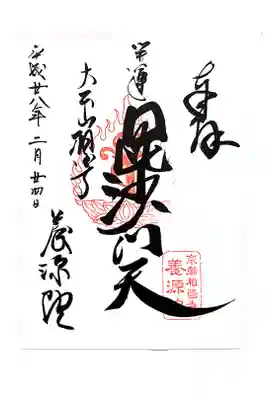 奉拝
開運
毘沙門天
大本山相国寺
平成廿八年二月廿四日
養源院
京都相国寺
養源